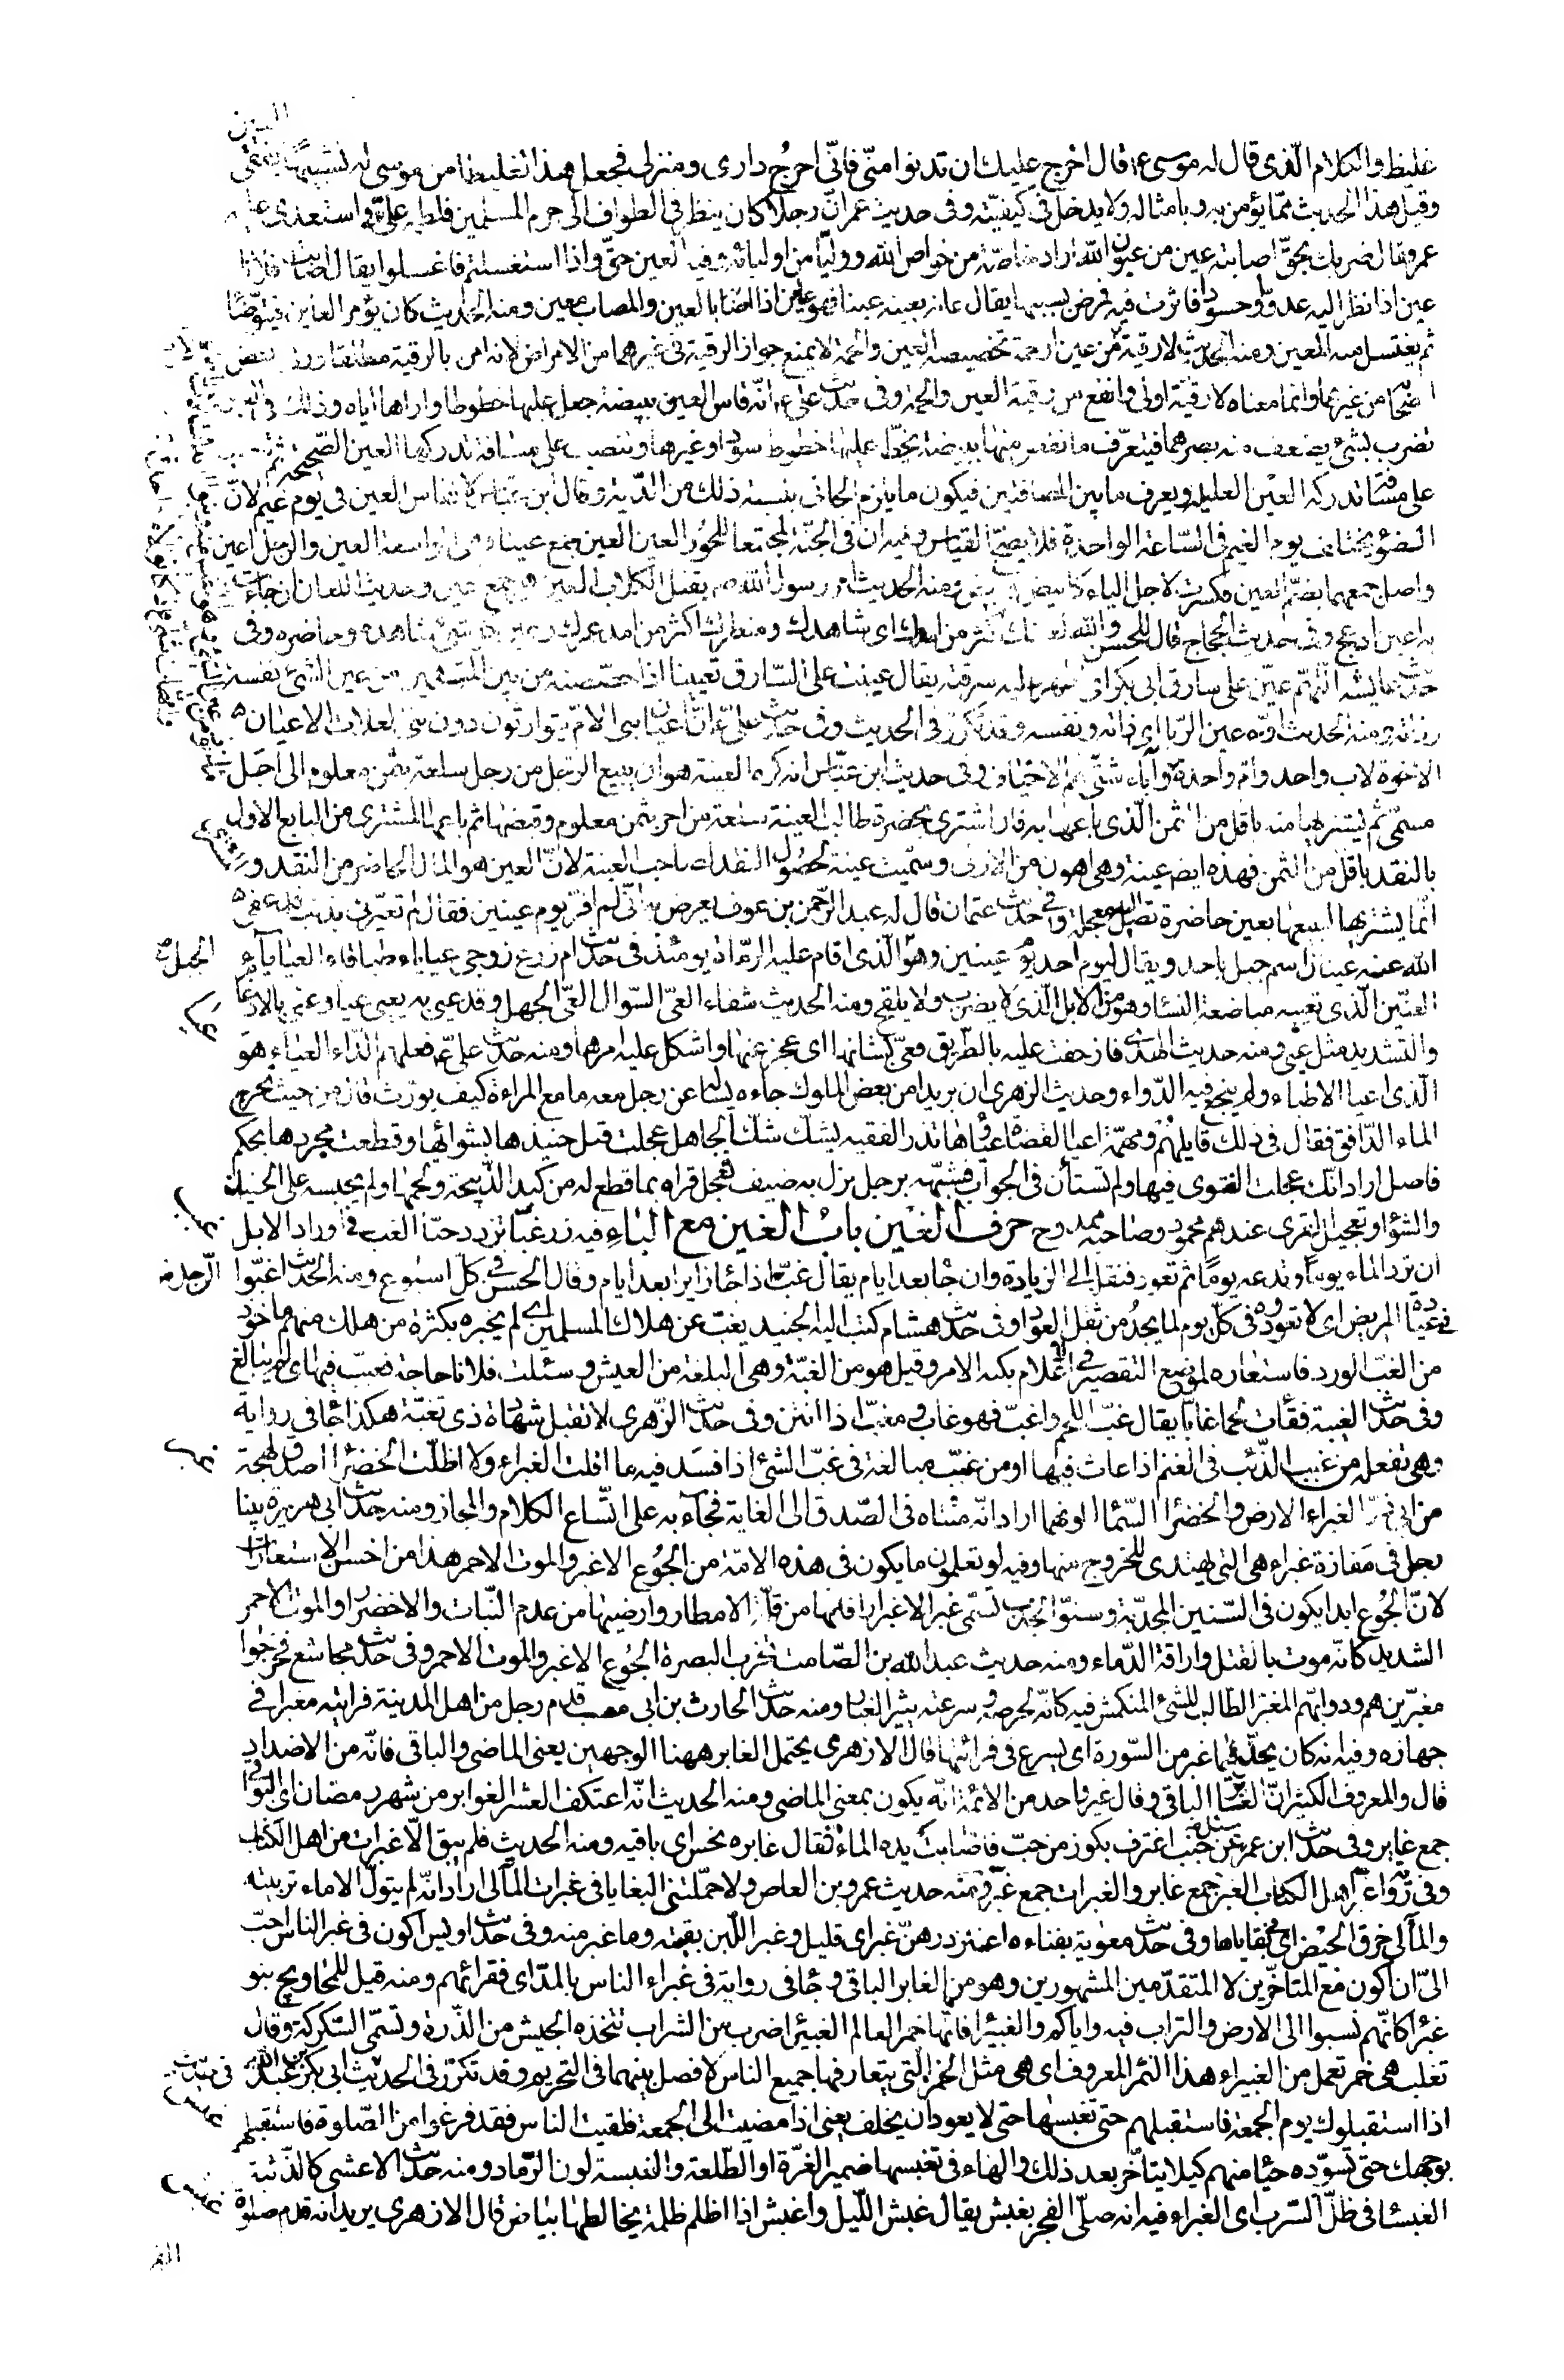 غليظ والكلام الّذى قال له موسى ع قال احرج عليك ان تدنوا منّى فانّى احرج دارى ومنزلى فجعل هذا تغليظا من موسى له تشبيها
وقيل هذا الحديث ممّا يؤمن به وبامثاله ولا يدخل فى كيفيّته وفى حديث عمر انّ رجلا كان ينظر فى الطواف الى حرم المسلمين فلطمه علىّ فاستعدى عليه
عمر فقال ضربك بحقّ اصابته عين من عيون الله اراد خاصّة من خواص الله ووليّا من اوليائه وفيه العين حقّ واذا استغسلتم فاغسلوا يقال اصابت فلانا
عين اذا نظر اليه عدوّ او حسود فاثرت فيه فمرض بسببها يقال عانه يعينه عينا فهو عاين اذا اصابه بالعين والمصاب معين ومنه الحديث كان يؤمر العاين فيتوضّأ
ثم يغتسل منه المعين ومنه الحديث لا رقية الّا من عين او حمة تخصيصه العين والحمة لا يمنع جواز الرقية فى غيرهما من الامراض لانه امر بالرقية مطلقا ورقى بعض
اصحابه من غيرهما وانما معناه لا رقية اولى وانفع من رقية العين والحمة وفى حديث علىّ ع انّه قاس العين ببيضة جعل عليها خطوطا واراها اياه وذلك فى العين
تضرب بشئ يضعف منه بصرها فيتعرّف ما نقص منها ببيضة يخطّ عليها خطوط سود او غيرها وتنصب على مسافة تدركها العين الصّحيحة ثم
على مسافة تدركه العين العليلة ويعرف ما بين المسافتين فيكون ما يلزم الجانى بنسبة ذلك من الدّية وقال ابن عبّاس لا تقاس العين فى يوم غيم لانّ
الضوء يختلف يوم الغيم فى السّاعة الواحدة فلا يصحّ القياس وفيه ان فى الجنّة لمجتمعا للحور العين العين جمع عيناء وهى الواسعة العين والرجل اعين
واصل جمعها بضمّ العين فكسرت لاجل الياء كابيض وبيض ومنه الحديث امر رسول الله ص بقتل الكلاب العين هى جمع اعين وحديث اللعان ان جاءت
به اعين ادعج وفى حديث الحجاج قال للحسن والله لعينك اكثر من امدك اى شاهدك ومنظرك اكثر من امد عمرك وعين كلّ شئ شاهده وحاضره وفى
حديث عايشة اللّهمّ عيّن على سارق ابى بكر اى اظهر عليه سرقته يقال عينت على السّارق تعيينا اذا خصّصته من بين المتّهمين من عين الشئ نفسه
وذاته ومنه الحديث اوّه عين الرّبا اى ذاته ونفسه وقد تكرّر فى الحديث وفى حديث علىّ ع انّ اعيان بنى الامّ يتوارثون دون بنى العلات الاعيان
الاخوة لاب واحد وامّ واحدة وفى حديث ابن عبّاس انه كره العينة هو ان يبيع الرّجل من رجل سلعة بثمن معلوم الى اجل
مسمّى ثم يشتريها منه باقل من الثمن الّذى باعها به فان اشترى بحضرة طالب العينة سلعة من اخر بثمن معلوم وقبضها ثم باعها المشترى من البايع الاول
بالنقد باقل من الثمن فهذه ايضا عينة وهى اهون من الاولى وسمّيت عينة لحصول النقد لصاحب العينة لانّ العين هو المال الحاضر من النقد و
انّما يشتريها ليبيعها بعين حاضرة تصل اليه معجّلة وفى حديث عثمان قال له عبد الرّحمن بن عوف يعرض به انّى لم افرّ يوم عينين فقال لم تعيّرنى بذنب قد عفى
الله عنه عينان اسم جبل باحد ويقال ليوم احد يوم عينين وهو الّذى اقام عليه الرماة يومئذ فى حديث ام زرع زوجى عياياء طباقاء العياياء
العنّين الّذى تعييه مباضعة النساء وهو من الابل الّذى لا يضرب ولا يلقح ومنه الحديث شفاء العىّ السّوال العىّ الجهل وقد عيى به يعيى عيا وعىّ بالادغام
والتشديد مثل عيى ومنه حديث الهدى فازحفت عليه بالطّريق فعىّ بشانها اى عجز عنها واشكل عليه امرها ومنه حديث علىّ ع فعلهم الدّاء العياء هو
الّذى اعيا الاطباء ولم ينجع فيه الدّواء وحديث الزهرى ان بريدا من بعض الملوك جاءه يسئله عن رجل معه ما مع المراءة كيف يورّث قال من حيث يخرج
الماء الدّافق فقال فى ذلك قايلهم ومهمّة اعيا القضاة عياؤها تذر الفقيه يشكّ شكّ الجاهل عجلت قبل حنيذها بشوائها وقطعت مجردها بحكم
فاصل اراد انّك عجلت الفتوى فيها ولم تستأن فى الجواب فشبّهه برجل نزل به ضيف فعجل قراه بما قطع له من كبد الذّبيحة ولحمها ولم يحبسه على الحنيذ
والشواء وتعجيل القرى عندهم محمود وصاحبه ممدوح حرف الغين باب الغين مع الباء فيه زر غبّا تزدد حبّا الغب فى اوراد الابل
ان ترد الماء يوما وتدعه يوما ثم تعود فنقل الى الزيادة وان جاء بعد ايام يقال غبّ اذا جاء زايرا بعد ايام وقال الحسن فى كلّ اسبوع ومنه الحديث اغبّوا
فى عيادة المريض اى لا تعودوه فى كل يوم لما يجد من ثقل العوّاد وفى حديث هشام كتب اليه الجنيد يغبّ عن هلاك المسلمين اى لم يخبره بكثرة من هلك منهم ماخوذ
من الغبّ الورد فاستعاره لموضع التقصير فى الاعلام بكنه الامر وقيل هو من الغبّة وهى البلغة من العيش وسئلت فلانا حاجة فغبّب فيها اى لم يبالغ
وفى حديث الغيبة فقأت لحما غابّا يقال غبّ اللحم واغبّ فهو غاب ومغبّ اذا انتن وفى حديث الزّهرى لا تقبل شهادة ذى تغبّة هكذا جاء فى رواية
وهى تفعلة من غبب الذّئب فى الغنم اذا عاث فيها او من غبّب مبالغة فى غبّ الشئ اذا فسد فيه ما اقلت الغبراء ولا اظلّت الخضراء اصدق لهجة
من ابى ذر الغبراء الارض والخضراء السّماء للونهما اراد انّه متناه فى الصّدق الى الغاية فجآء به على اتّساع الكلام والمجاز ومنه حديث ابى هريرة بينا
رجل فى مفازة غبراء هى التى لا يهتدى للخروج منها وفيه لو تعلمون ما يكون فى هذه الامّة من الجوع الاغبر والموت الاحمر هذا من احسن الاستعارات
لانّ الجوع ابدا يكون فى السّنين المجدبة وسنوّ الجدب تسمّى غبرا لاغبرار افاقها من قلّة الامطار وارضيها من عدم النّبات والاخضرار والموت الاحمر
الشديد كانّه موت بالقتل واراقة الدّماء ومنه حديث عبد الله بن الصّامت يخرب البصرة الجوع الاغبر والموت الاحمر وفى حديث مجاشع فخرجوا
مغبرّين هم ودوابّهم المغبّر الطالب للشئ المنكمش فيه كانّه لحرصه وسرعته يثير الغبار ومنه حديث الحارث بن ابى مصعب قدم رجل من اهل المدينة فرايته مغبرا فى
جهازه وفيه انه كان يحدّر فيما غبر من السّورة اى يسرع فى قرائتها قال الازهرى يحتمل الغابر ههنا الوجهين يعنى الماضى والباقى فانّه من الاضداد
قال والمعروف الكثير انّ الغابر الباقى وقال غير واحد من الائمّة انّه يكون بمعنى الماضى ومنه الحديث انّه اعتكف العشر الغوابر من شهر رمضان اى البواقى
جمع غابر وفى حديث ابن عمر سئل عن جنب اغترف بكوز من حبّ فاصابت يده الماء فقال غابره نجس اى باقيه ومنه الحديث فلم يبق الّا غبرات من اهل الكتاب
وفى رواية غبّر اهل الكتاب الغبر جمع غابر والغبرات جمع غبّر ومنه حديث عمرو بن العاص ولا حمّلتنى البغايا فى غبرات المآلى اراد انّه لم يتولّ الاماء تربيته
والمآلى خرق الحيض اى فى بقاياها وفى حديث معوية بفناءه اعنز درهنّ غبر اى قليل وغبر اللّبن بقيّته وما غبر منه وفى حديث اويس اكون فى غبر الناس احبّ
الىّ ان اكون مع المتاخّرين لا المتقدّمين المشهورين وهو من الغابر الباقى وجاء فى رواية فى غبراء الناس بالمدّ اى فقرائهم ومنه قيل للمحاويج بنو
غبراء كانّهم نسبوا الى الارض والتراب فيه واياكم والغبيراء فانّها خمر العالم الغبيراء ضرب من الشراب تتّخذه الحبش من الذّرة وتسمّى السّكركة وقال
ثعلب هى خمر تعمل من الغبيراء هذا الثمر المعروف اى هى مثل الخمر الّتى يتعارفها جميع الناس لا فصل بينهما فى التحريم وقد تكرّر فى الحديث ابى بكر بن عبد الله
اذا استقبلوك يوم الجمعة فاستقبلهم حتى تغبسها حتى لا يعود ان يخلف يعنى اذا مضيت الى الجمعة فلقيت الناس فقد فرغوا من الصّلوة فاستقبلهم
بوجهك حتى تسوّده حياء منهم كيلا يتاخّر بعد ذلك والهاء فى تغبسها ضمير الغرّة او الطّلعة والغبسة لون الرّماد ومنه حديث الاعشى كالذّئبة
الغبساء فى ظلّ السّرب اى الغبراء فيه انه صلّى الفجر بغبش يقال غبش اللّيل واغبش اذا اظلم ظلمة يخالطها بياض قال الازهرى يريد انه قدم صلوة
الجبل
عيا
غبب
الرّجل
غبر
فى حديث
غبس
غبش